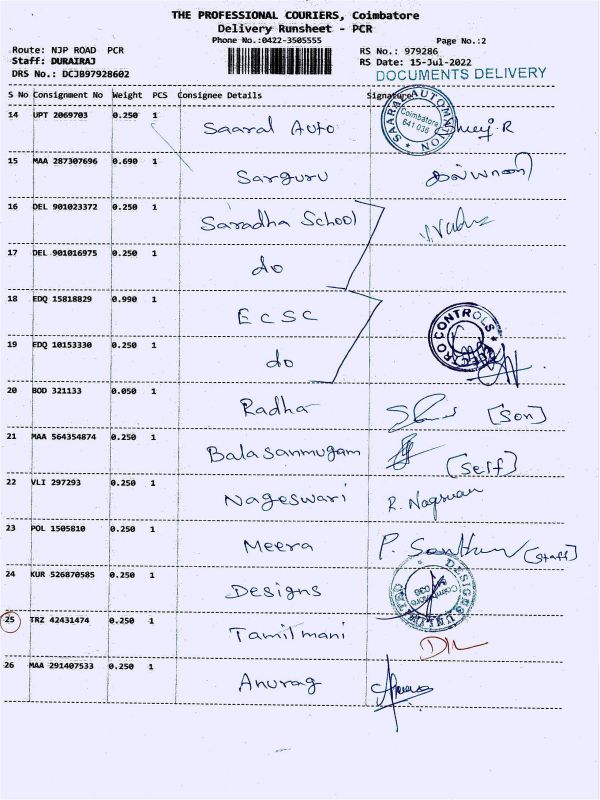 THE PROFESSIONAL COURIERS, Coimbatore
Delivery Runsheet - PCR
Phone No.:0422-3505555
Page No.:2
Route: NJP ROAD PCR
RS No.: 979286
Staff: DURAIRAJ
RS Date: 15-Jul-2022
DRS No.: DCJB97928602
DOCUMENTS DELIVERY
S No Consignment No Weight PCS Consignee Details Signature
14 UPT 2069703 0.250 1 Saaral Auto
SAARAL AUTOMATION
Coimbatore
641 036
15 MAA 287307696 0.690 1 Sarguru
16 DEL 901023372 0.250 1 Saradha School
17 DEL 901016975 0.250 1 do
18 EDQ 15818829 0.990 1 ECSC
19 EDQ 10153330 0.250 1 do
CONTROLS
20 BOD 321133 0.050 1 Radha [Son]
21 MAA 564354874 0.250 1 Balasanmugam [Self]
22 VLI 297293 0.250 1 Nageswari
23 POL 1505810 0.250 1 Meera [Staff]
24 KUR 526870585 0.250 1 Designs
DESIGNS UNLIMITED
Coimbatore
036
25 TRZ 42431474 0.250 1 Tamilmani
26 MAA 291407533 0.250 1 Anurag